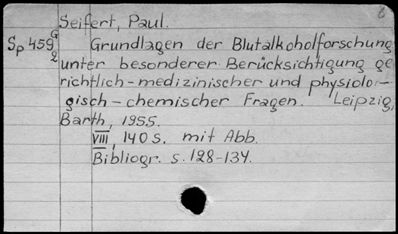 8
Seifert, Paul.
Sp 459 G 2
Grundlagen der Blutalkoholforschung
unter besonderer Berücksichtigung ge
richtlich-medizinischer und physiolo-
gisch-chemischer Fragen. Leipzig,
Barth, 1955.
VIII, 140 S. mit Abb.
Bibliogr. s. 128-134.